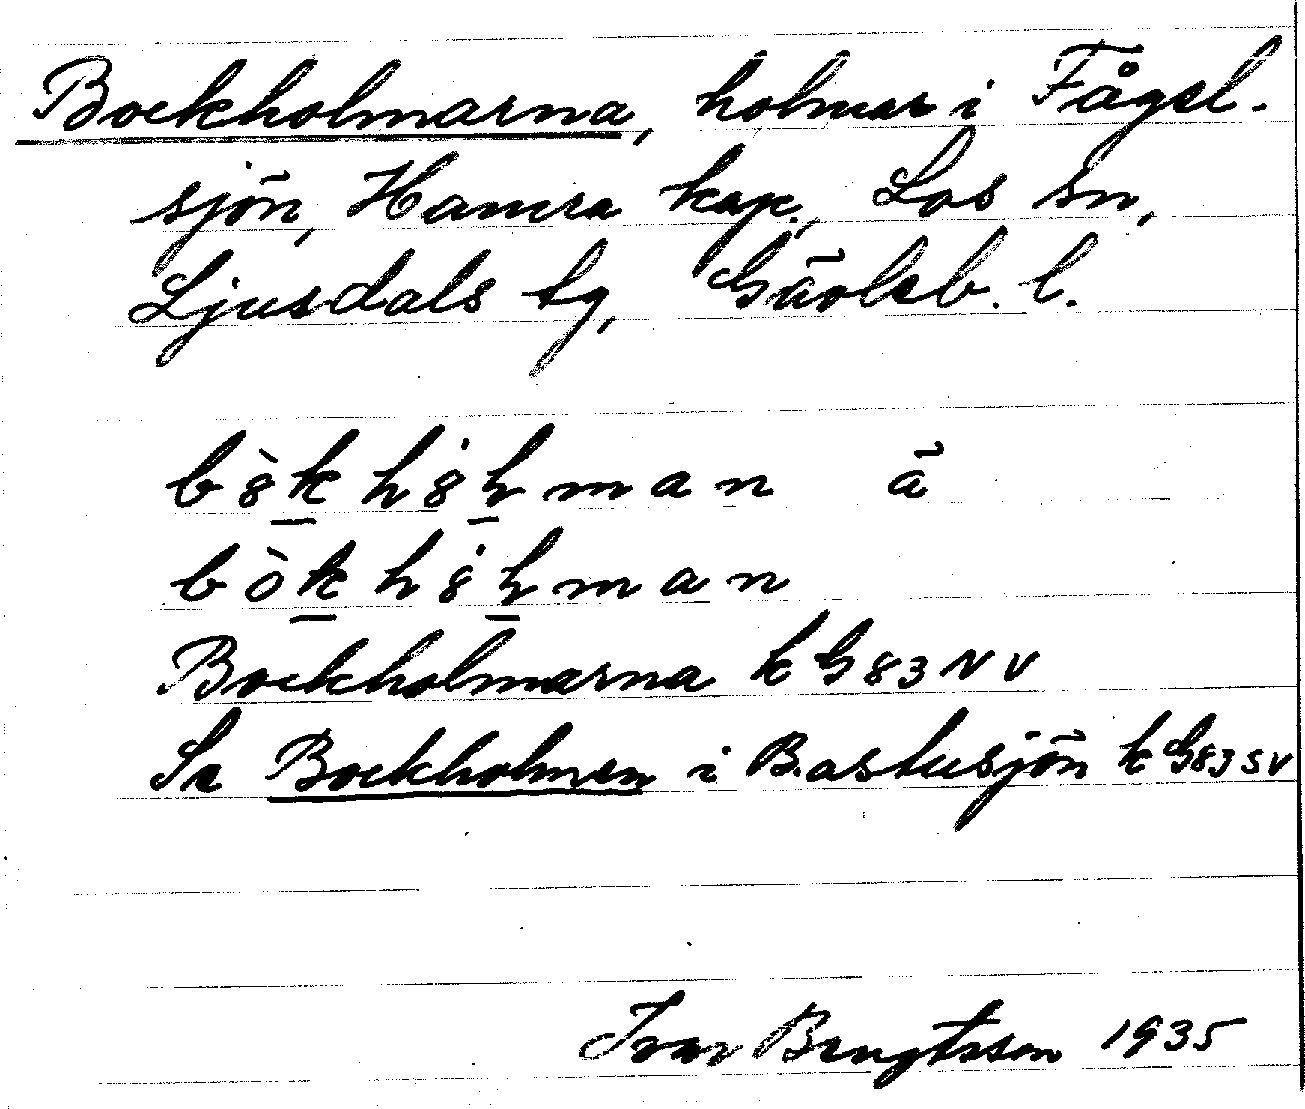 Bockholmarna, holmar i Fågel-
sjön, Hamra kap., Los sn,
Ljusdals tg, Gävleb. l.
bò̀khȯḷman ä
bòkhȯḷman
Bockholmarna k G 83 NV
Se Bockholmen i Bastusjön k G 83 SV
Ivar Bengtsson 1935